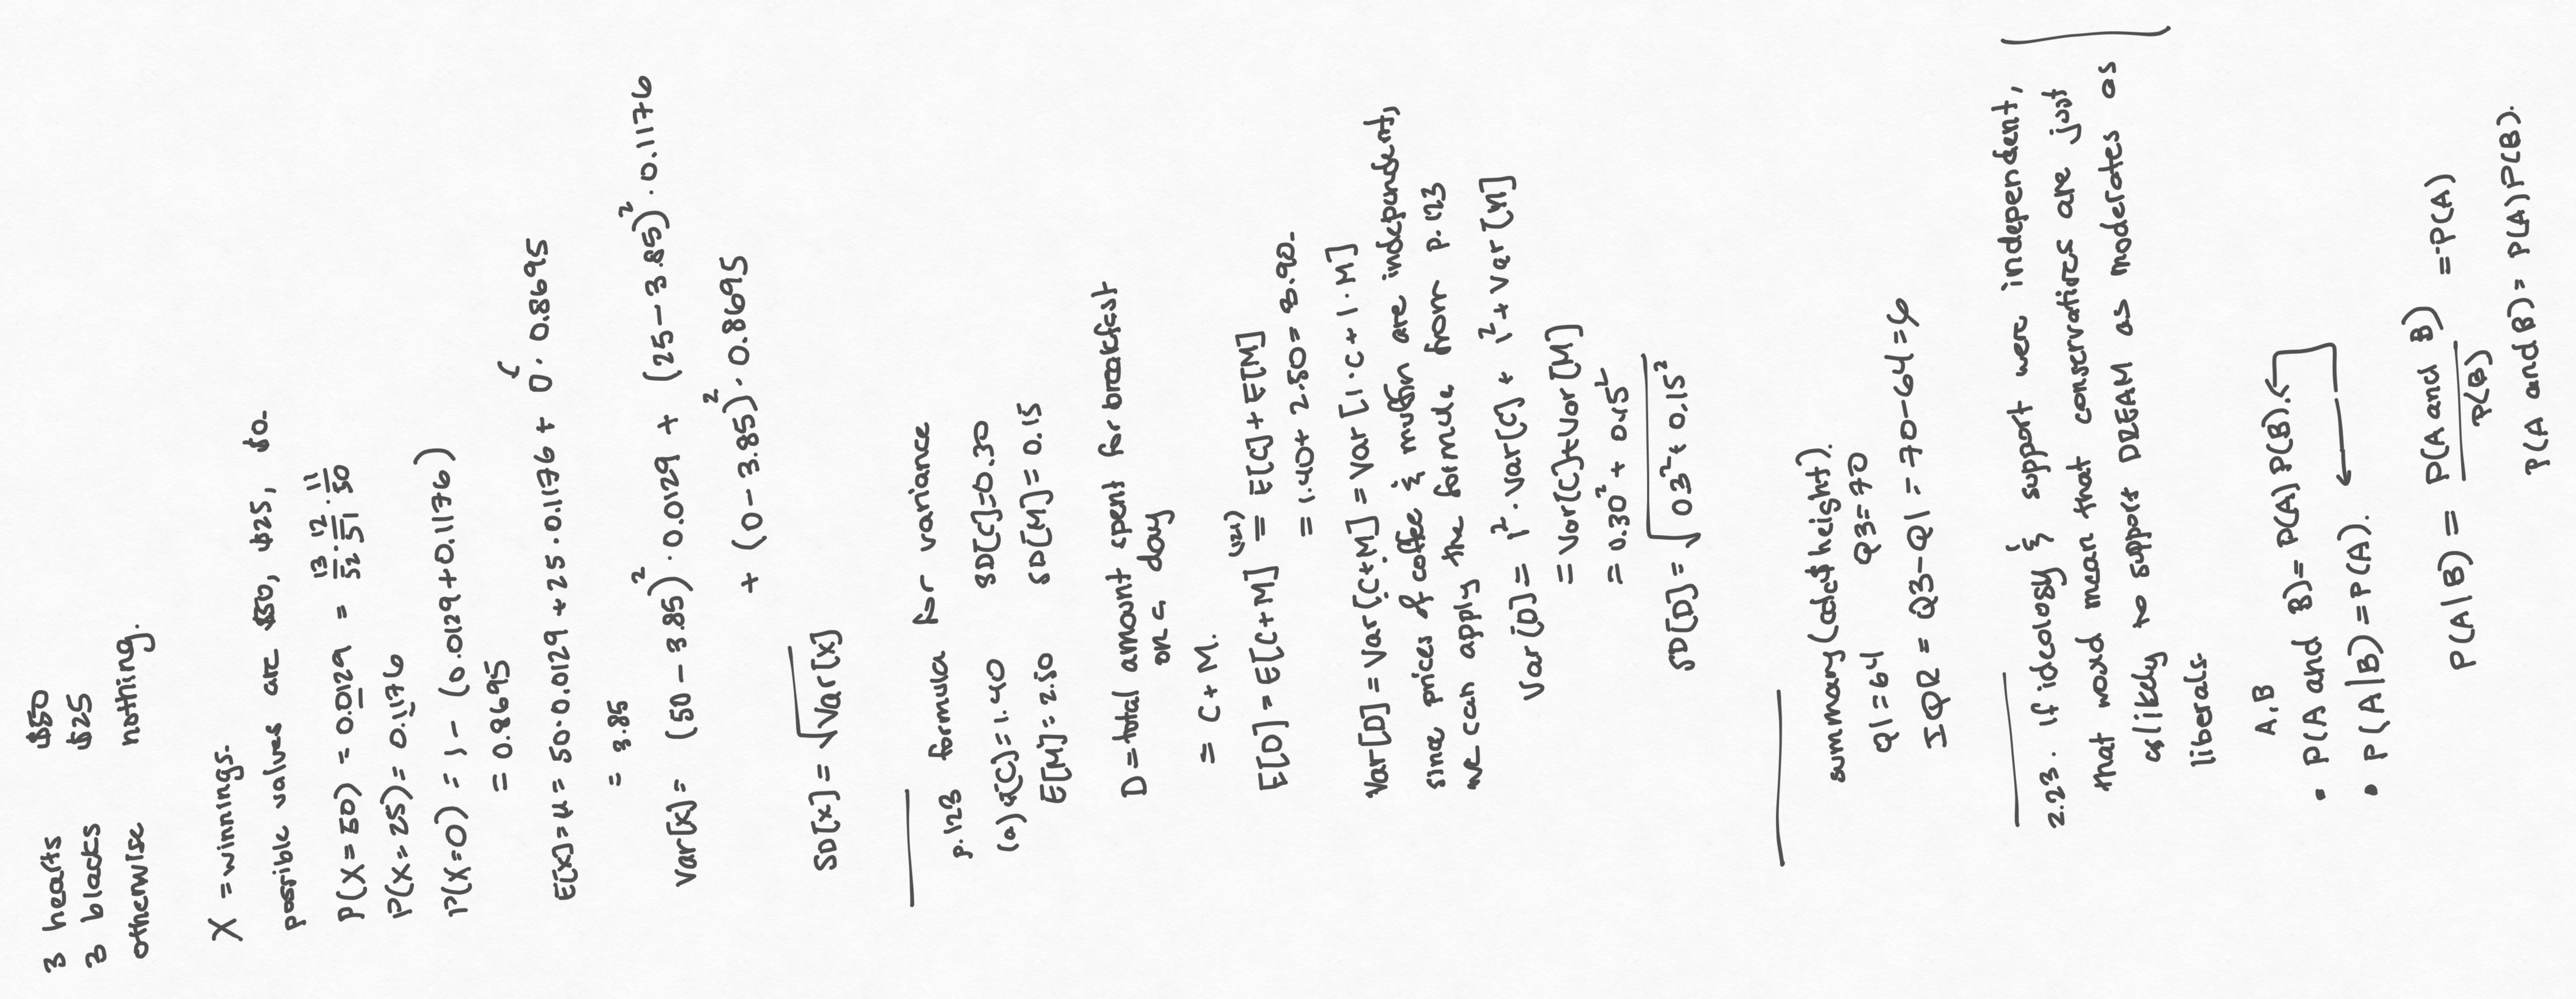 3 hearts $50
3 blacks $25
otherwise nothing.
X = winnings.
possible values are $50, $25, $0.
P(X=50) = 0.0129 = 13/52 · 12/51 · 11/50
P(X=25) = 0.1176
P(X=0) = 1 - (0.0129+0.1176)
= 0.8695
E[X] = μ = 50·0.0129 + 25·0.1176 + 0· 0.8695
= 3.85
Var[X] = (50-3.85)²·0.0129 + (25-3.85)²·0.1176
+ (0-3.85)²·0.8695
SD[X] = √Var[X]
p.123 formula for variance
(a) E[C]=1.40 SD[C]=0.30
E[M]=2.50 SD[M]=0.15
D = total amount spent for breakfast
on a day
= C + M.
E[D] = E[C+M] (121)= E[C]+E[M]
= 1.40+ 2.50 = 3.90.
Var[D] = Var[C+M] = Var[1·C+1·M]
since prices of coffee & muffin are independent,
we can apply the formula from p.123
Var[D] = 1²·Var[C] + 1²+Var[M]
= Var[C]+Var[M]
= 0.30² + 0.15²
SD[D] = √0.3²+ 0.15²
summary(cdc$height).
Q1=64 Q3=70
IQR = Q3-Q1 = 70-64=6
2.23. If ideology & support were independent,
that would mean that conservatives are just
as likely to support DREAM as moderates as
liberals.
A, B
• P(A and B)= P(A) P(B).
• P(A|B) = P(A).
P(A|B) = P(A and B)/P(B) = P(A)
P(A and B)= P(A)P(B).